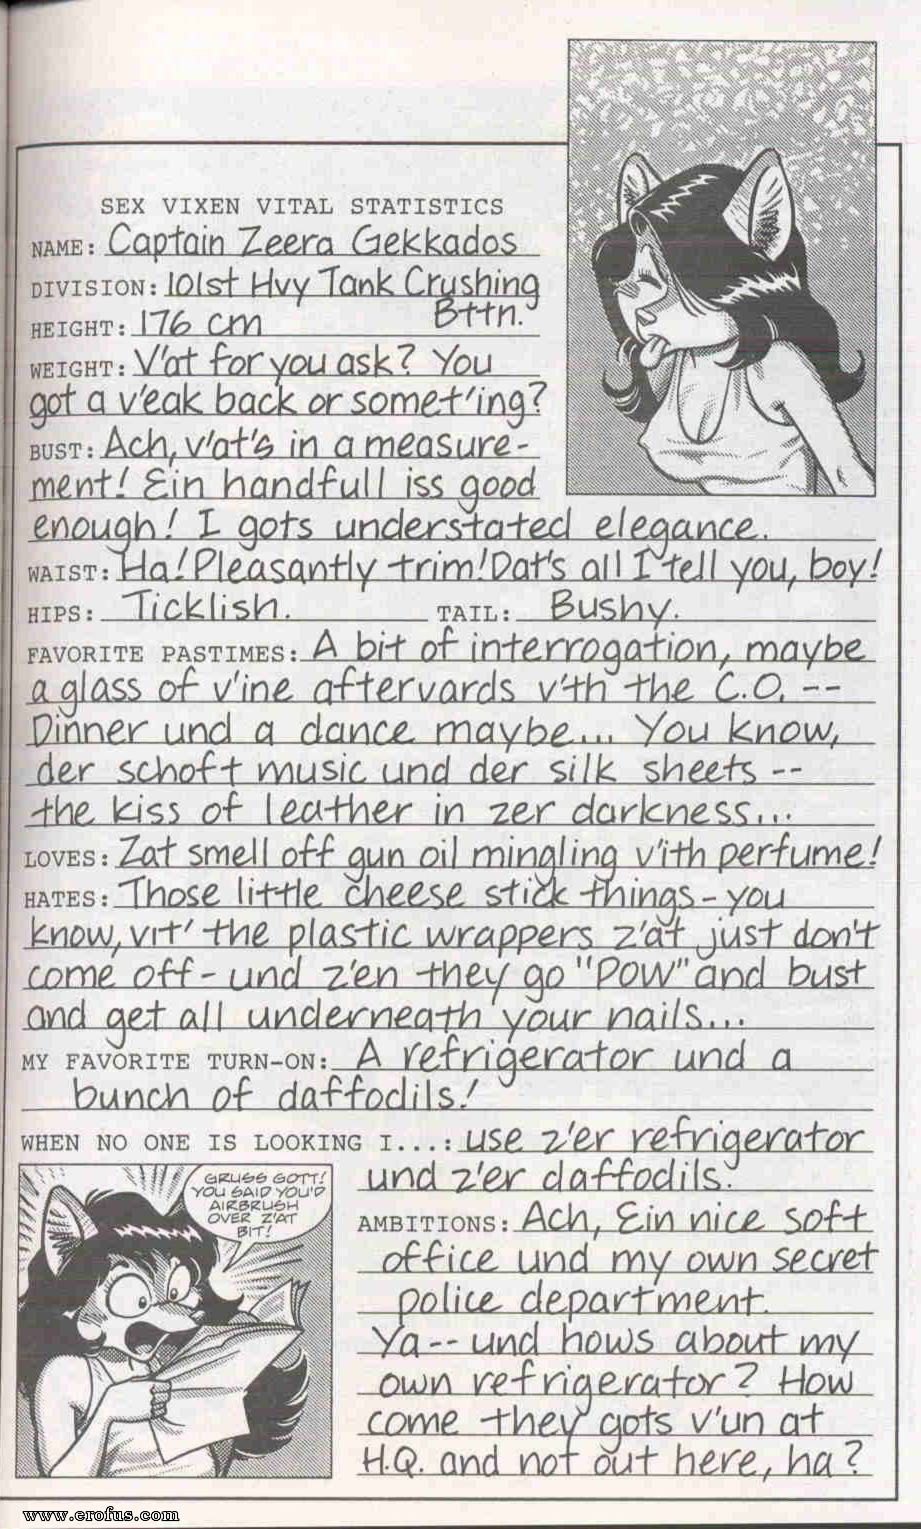 SEX VIXEN VITAL STATISTICS
NAME: Captain Zeera Gekkados
DIVISION: 101st Hvy Tank Crushing
Bttn.
HEIGHT: 176 cm
WEIGHT: V'at for you ask? You
got a v'eak back or somet'ing?
BUST: Ach, v'at's in a measure-
ment! Ein handfull iss good
enough! I gots understated elegance.
WAIST: Ha! Pleasantly trim! Dat's all I tell you, boy!
HIPS: Ticklish. TAIL: Bushy.
FAVORITE PASTIMES: A bit of interrogation, maybe
a glass of v'ine aftervards v'th the C.O. --
Dinner und a dance maybe... You know,
der schoft music und der silk sheets --
the kiss of leather in zer darkness...
LOVES: Zat smell off gun oil mingling v'ith perfume!
HATES: Those little cheese stick things - you
know, vit' the plastic wrappers z'at just don't
come off - und z'en they go "POW" and bust
and get all underneath your nails...
MY FAVORITE TURN-ON: A refrigerator und a
bunch of daffodils!
WHEN NO ONE IS LOOKING I...: use z'er refrigerator
und z'er daffodils.
GRUSS GOTT!
YOU SAID YOU'D
AIRBRUSH
OVER Z'AT
BIT!
AMBITIONS: Ach, Ein nice soft
office und my own secret
police department.
Ya -- und hows about my
own refrigerator? How
come they gots v'un at
H.Q. and not out here, ha?
www.erofus.com